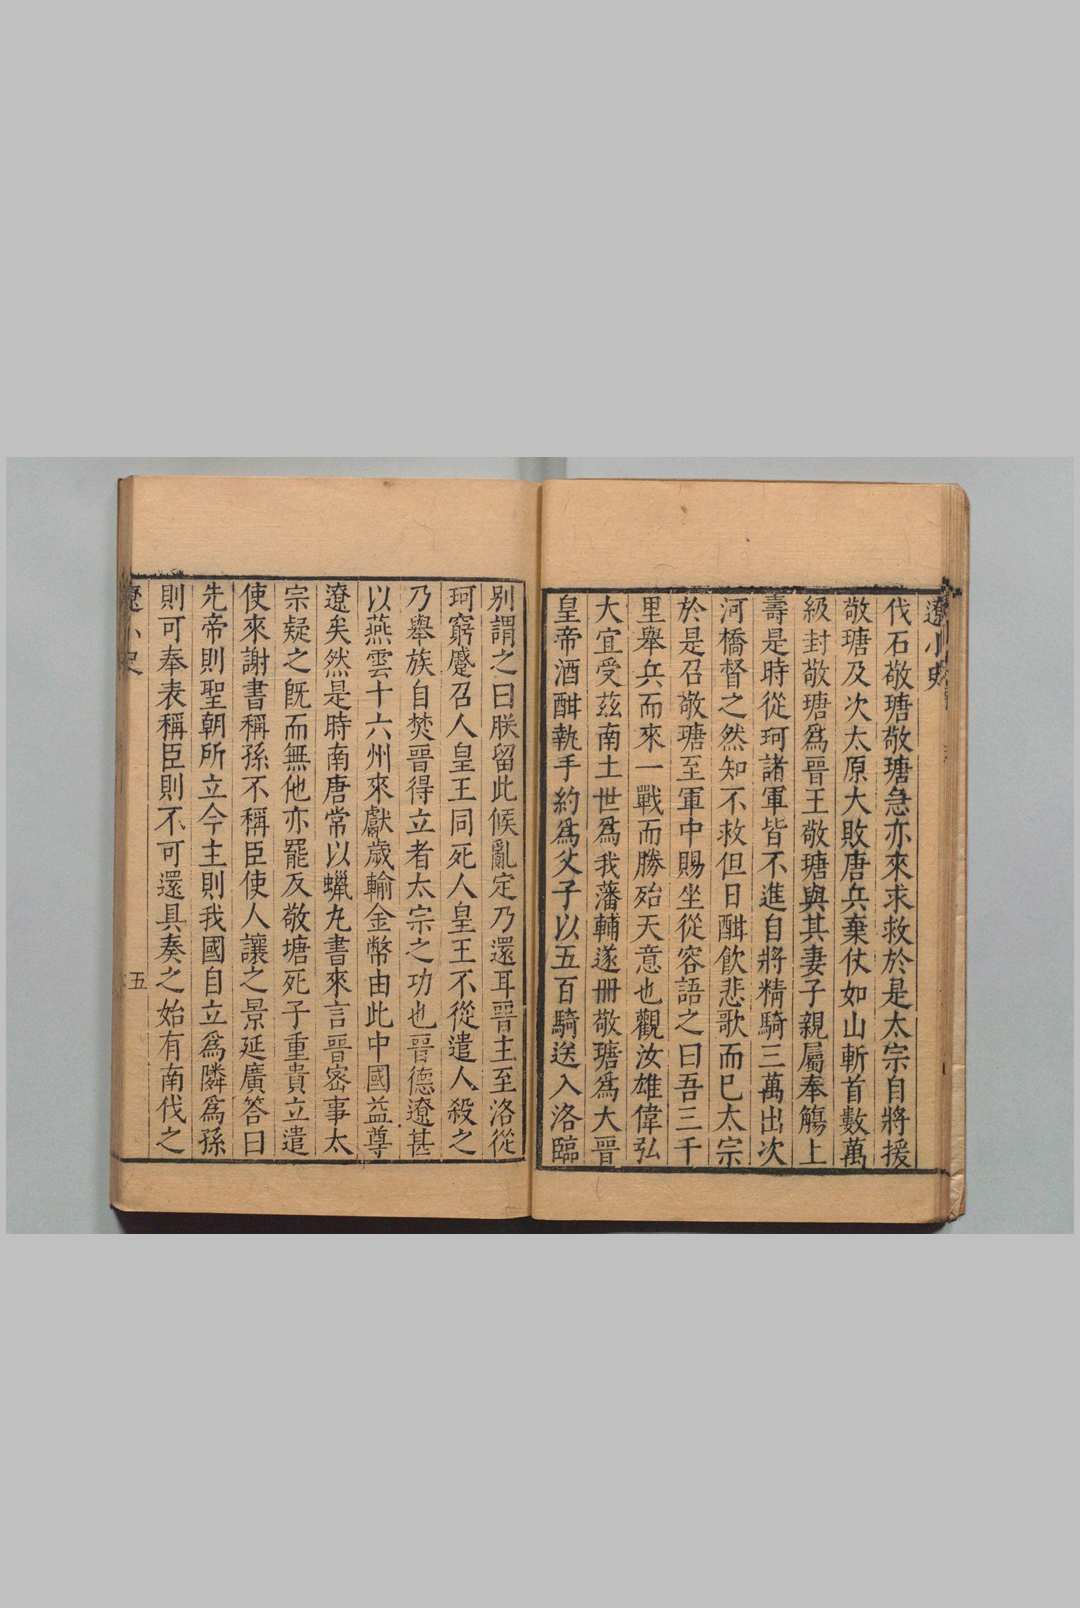 遼小史
伐石敬瑭敬瑭急亦來求救於是太宗自將援
敬瑭及次太原大敗唐兵棄仗如山斬首數萬
級封敬瑭爲晉王敬瑭與其妻子親屬奉觴上
壽是時從珂諸軍皆不進自將精騎三萬出次
河橋督之然知不救但日酣飮悲歌而已太宗
於是召敬瑭至軍中賜坐從容語之曰吾三千
里舉兵而來一戰而勝殆天意也觀汝雄偉弘
大宜受茲南土世爲我藩輔遂冊敬瑭爲大晉
皇帝酒酣執手約爲父子以五百騎送入洛臨
別謂之曰朕留此候亂定乃還耳晉主至洛從
珂窮蹙召人皇王同死人皇王不從遣人殺之
乃舉族自焚晉得立者太宗之功也晉德遼甚
以燕雲十六州來獻歲輸金幣由此中國益尊
遼矣然是時南唐常以蠟丸書來言晉密事太
宗疑之旣而無他亦罷及敬塘死子重貴立遣
使來謝書稱孫不稱臣使人讓之景延廣答曰
先帝則聖朝所立今主則我國自立爲隣爲孫
則可奉表稱臣則不可還具奏之始有南伐之
遼小史
五